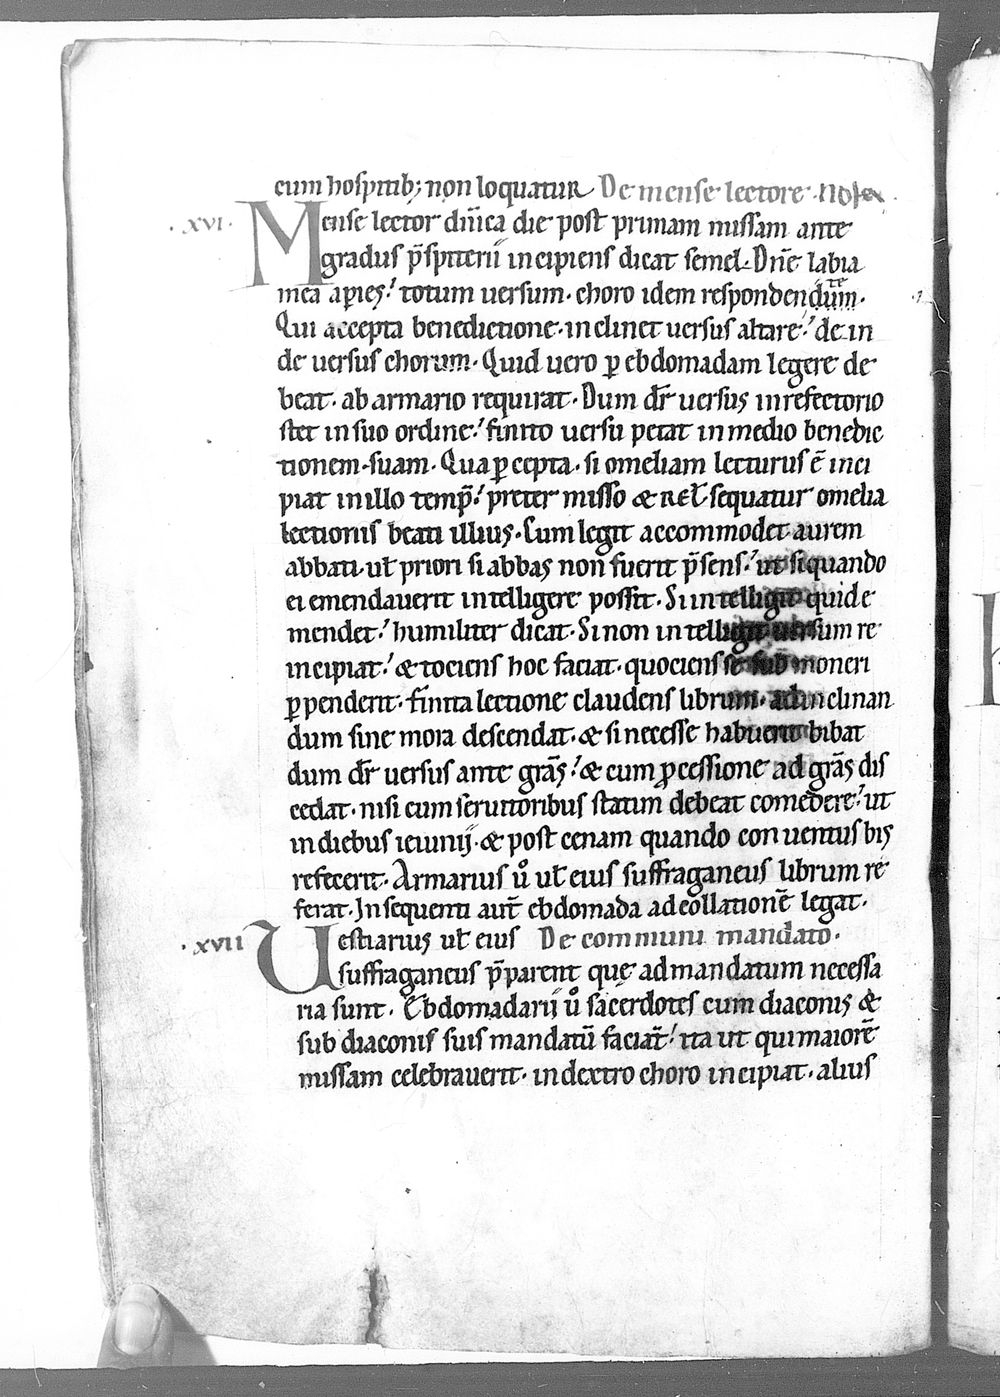 cum hospitib; non loquatur De mense lectore.
.xvi. Mense lector dn̄ica die post primam missam ante
gradus p̄spiterii incipiens dicat semel. Dn̄e labia
mea aperies. totum uersum. choro idem respondente.
Qui accepta benedictione. inclinet uersus altare. de in
de uersus chorum. Quid uero ꝑ ebdomadam legere de
beat. ab armario requirat. Dum dr̄ uersus in refectorio
stet in suo ordine. finito uersu petat in medio benedic
tionem suam. Qua ꝑcepta. si omeliam lecturus ē inci
piat in illo temp̄. preter misso & rel̄ sequatur omelia
lectionis beati illius. Cum legit accommodet aurem
abbati. ul̄ priori si abbas non fuerit p̄sens. ut si quando
ei emendauerit intelligere possit. Si intelligit quid e
mendet. humiliter dicat. Si non intelligit uersum re
incipiat. & tociens hoc faciat. quociens se sub moneri
ꝑpenderit. finita lectione claudens librum. ad inclinan
dum sine mora descendat. & si necesse habuerit bibat
dum dr̄ uersus ante grās. & cum ꝓcessione ad grās dis
cedat. nisi cum seruitoribus statim debeat comedere. ut
in diebus ieiunij. & post cenam quando conuentus bis
refecerit. Armarius ů ul̄ eius suffraganeus librum re
ferat. In sequenti aut̄ ebdomada ad collationē legat.
.xvii Uestiarius ul̄ eius De communi mandato.
suffraganeus p̄parent quę ad mandatum necessa
ria sunt. Ebdomadarij ů sacerdotes cum diaconis &
sub diaconis suis mandatū faciāt. ita ut qui maiorē
missam celebrauerit. in dextro choro incipiat. alius